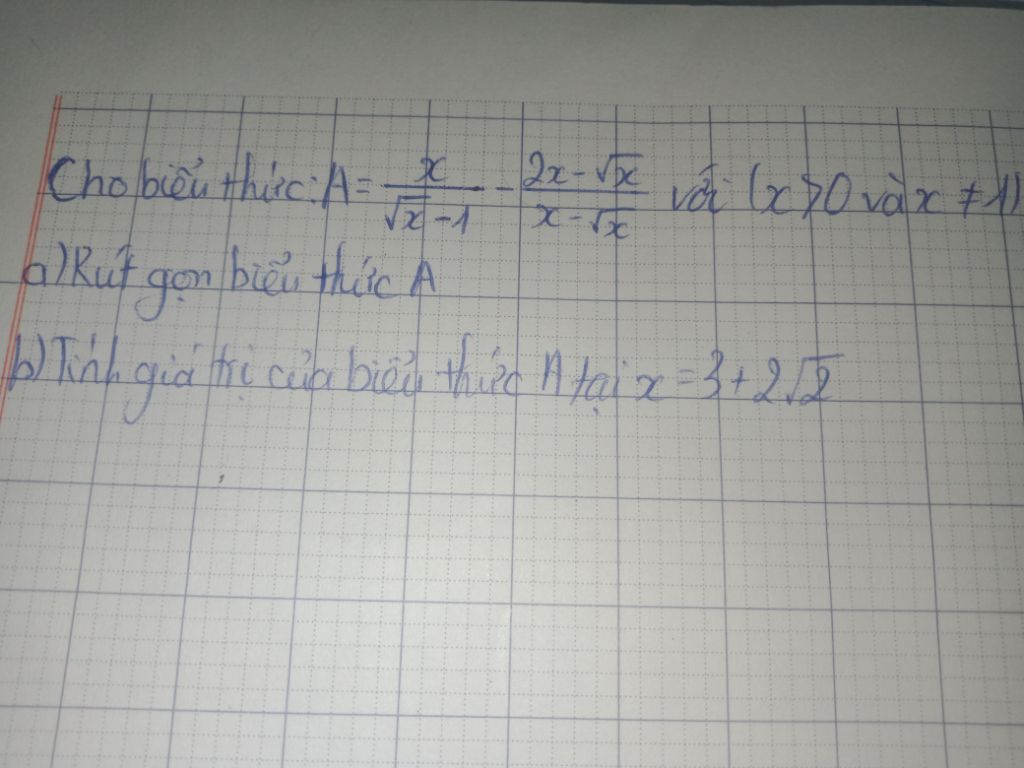 Cho biểu thức: A = x/(√x - 1) - (2x - √x)/(x - √x) với (x > 0 và x ≠ 1)
a) Rút gọn biểu thức A
b) Tính giá trị của biểu thức A tại x = 3 + 2√2